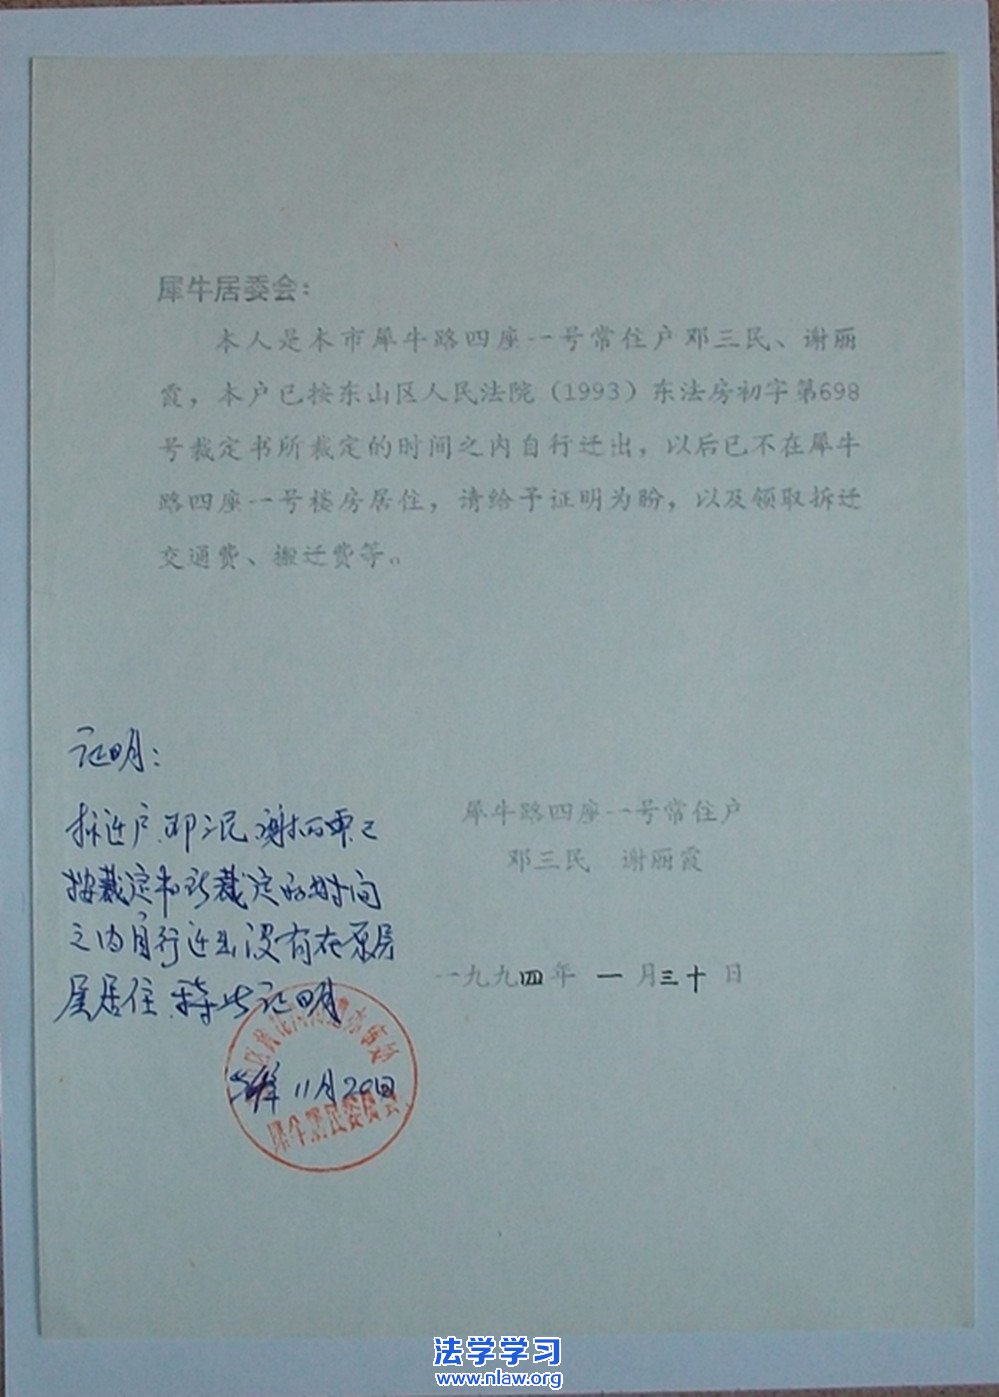 犀牛居委会：
本人是本市犀牛路四座一号常住户邓三民、谢丽
霞，本户已按东山区人民法院（1993）东法房初字第698
号裁定书所裁定的时间之内自行迁出，以后已不在犀牛
路四座一号楼房居住，请给予证明为盼，以及领取拆迁
交通费、搬迁费等。
犀牛路四座一号常住户
邓三民 谢丽霞
一九九四年 一 月三十 日
证明：
拆迁户.邓三民.谢丽霞已
按裁定书所裁定的时间
之内自行迁出,没有在原房
屋居住.特此证明
11月20日
犀牛居民委员会
法学学习
www.nlaw.org